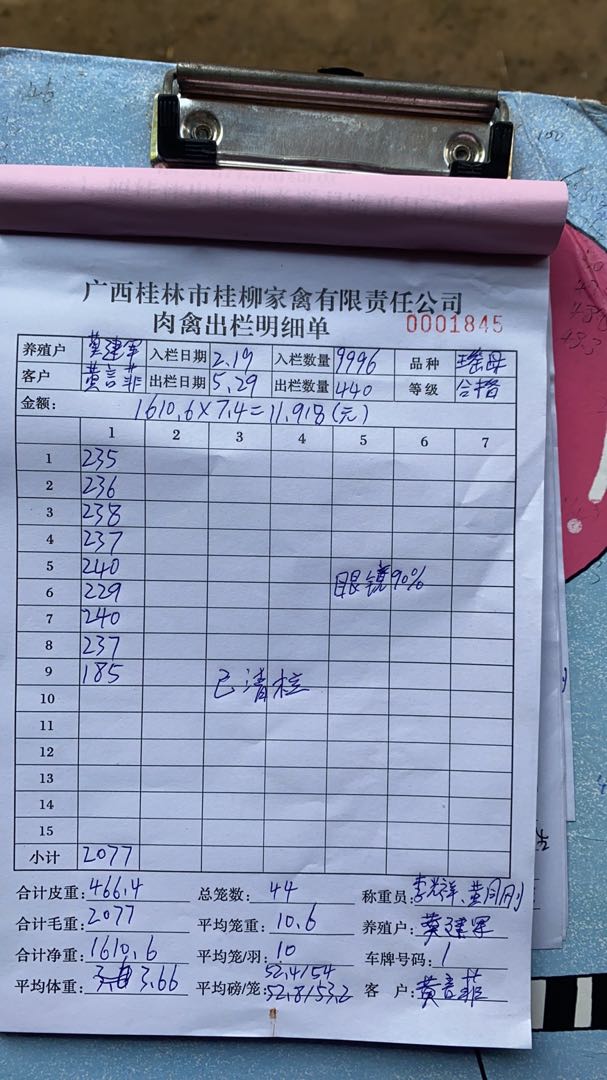 广西桂林市桂柳家禽有限责任公司
肉禽出栏明细单 0001845
养殖户 莫建军 入栏日期 2.19 入栏数量 9996 品种 瑶母
客户 黄言菲 出栏日期 5.29 出栏数量 440 等级 合格
金额: 1610.6×7.4=11.918(元)
1 2 3 4 5 6 7
1 235
2 236
3 238
4 237
5 240
6 229 眼镜90%
7 240
8 237
9 185 已清栏
10
11
12
13
14
15
小计 2077
合计皮重: 466.4 总笼数: 44 称重员: 李光祥、黄同刚
合计毛重: 2077 平均笼重: 10.6 养殖户: 莫建军
合计净重: 1610.6 平均笼/羽: 10 车牌号码: 1
平均体重: 3.66 平均磅/笼: 52.4/54 52.8/53.2 客户: 黄言菲